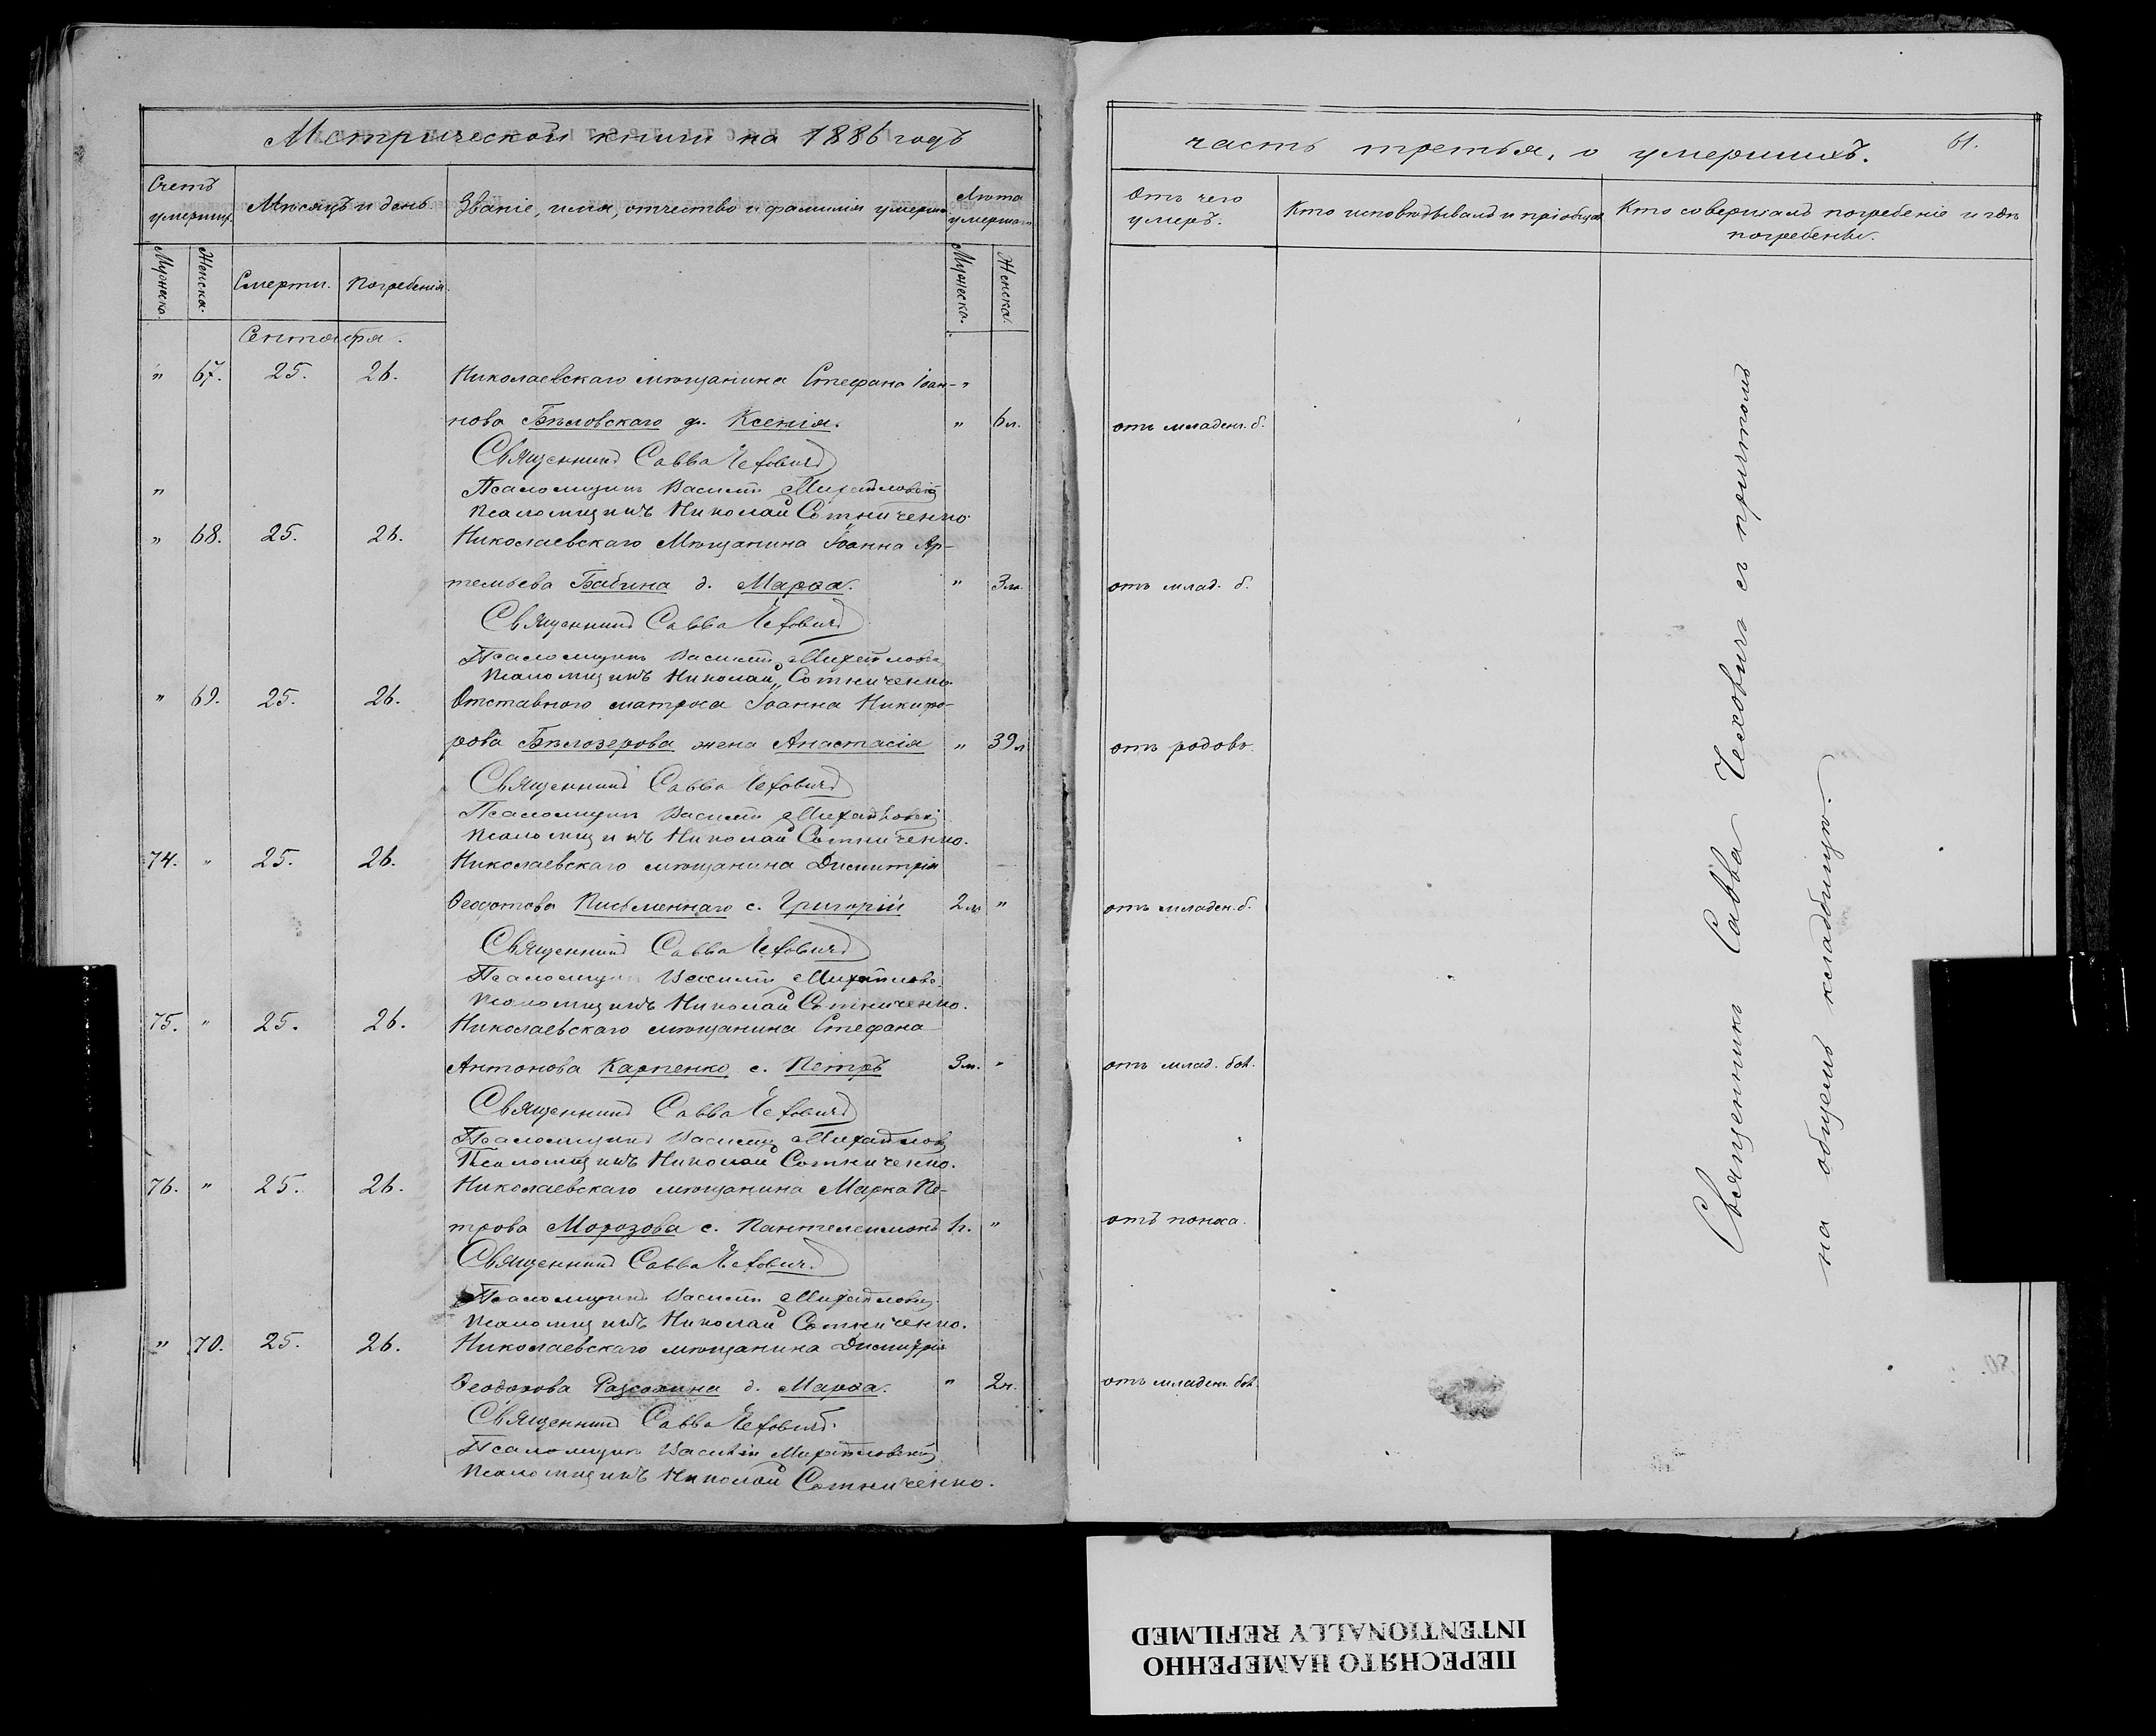 Метрической книги на 1886 годъ
Счетъ умершихъ.
Мѣсяцъ и день.
Званіе, имя, отчество и фамилія умерша
Лѣта умершаго
Мужеска.
Женска.
Смерти.
Погребенія.
Мужеска.
Женска.
Сентября.
" 67. 25. 26. Николаевскаго мѣщанина Стефана Іоан- "
нова Бѣловскаго д. Ксенія. " 6 м.
Священникъ Савва Чеховичъ
Псаломщикъ Василій Михайловскій
"
Псаломщикъ Николай Сотниченко
" 68. 25. 26. Николаевскаго Мѣщанина Іоанна Ар-
темьева Бабина д. Марѳа. " 3 м.
Священникъ Савва Чеховичъ
Псаломщикъ Василій Михайловскій
Псаломщикъ Николай Сотниченко.
" 69. 25. 26. Отставного матроса Іоанна Никифо-
рова Бѣлозерова жена Анастасія " 39 л
Священникъ Савва Чеховичъ
Псаломщикъ Василій Михайловскій
Псаломщикъ Николай Сотниченко.
74. " 25. 26. Николаевскаго мѣщанина Димитрія
Ѳеодотова Письменнаго с. Григорій 2 м "
Священникъ Савва Чеховичъ
Псаломщикъ Василій Михайловскій
Псаломщикъ Николай Сотниченко.
75. " 25. 26. Николаевскаго мѣщанина Стефана
Антонова Карпенко с. Петръ 3 м. "
Священникъ Савва Чеховичъ
Псаломщикъ Василій Михайловскій
Псаломщикъ Николай Сотниченко.
76. " 25. 26. Николаевскаго мѣщанина Марка Пе-
трова Морозова с. Пантелеимонъ 1 г. "
Священникъ Савва Чеховичъ
Псаломщикъ Василій Михайловскій
Псаломщикъ Николай Сотниченко.
" 70. 25. 26. Николаевскаго мѣщанина Димитрія
Ѳеодорова д. Марѳа. " 2
Священникъ Савва Чеховичъ.
Псаломщикъ Василій Михайловскій
Псаломщикъ Николай Сотниченко.
часть третья, о умершихъ. 61.
Отъ чего умеръ.
Кто исповѣдывалъ и пріобщалъ
Кто совершалъ погребеніе и гдѣ
погребены.
отъ младенч. б.
отъ млад. б.
отъ родовъ.
отъ младен. б.
отъ млад. бол.
отъ поноса.
отъ младен. бол.
Священникъ Савва Чеховичъ съ причтомъ
на общемъ кладбищѣ.
ПЕРЕСНЯТО НАМЕРЕННО
INTENTIONALLY REFILMED